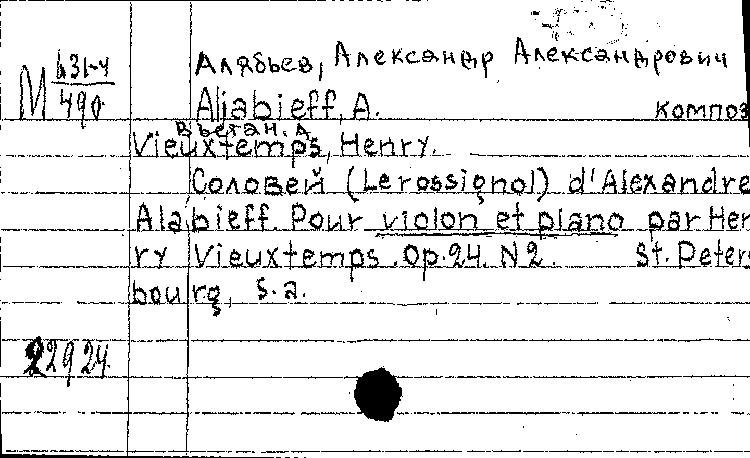 М 631-4
490
Алябьев, Александр Александрович
Aljabieff, A. композ
Вьетан. А
Vieuxtemps, Henry.
Соловей (Le rossignol) d'Alexandre
Alabieff. Pour violon et piano par Hen
ry Vieuxtemps. Op. 24. N 2. St. Peters
bourg, s.a.
22924